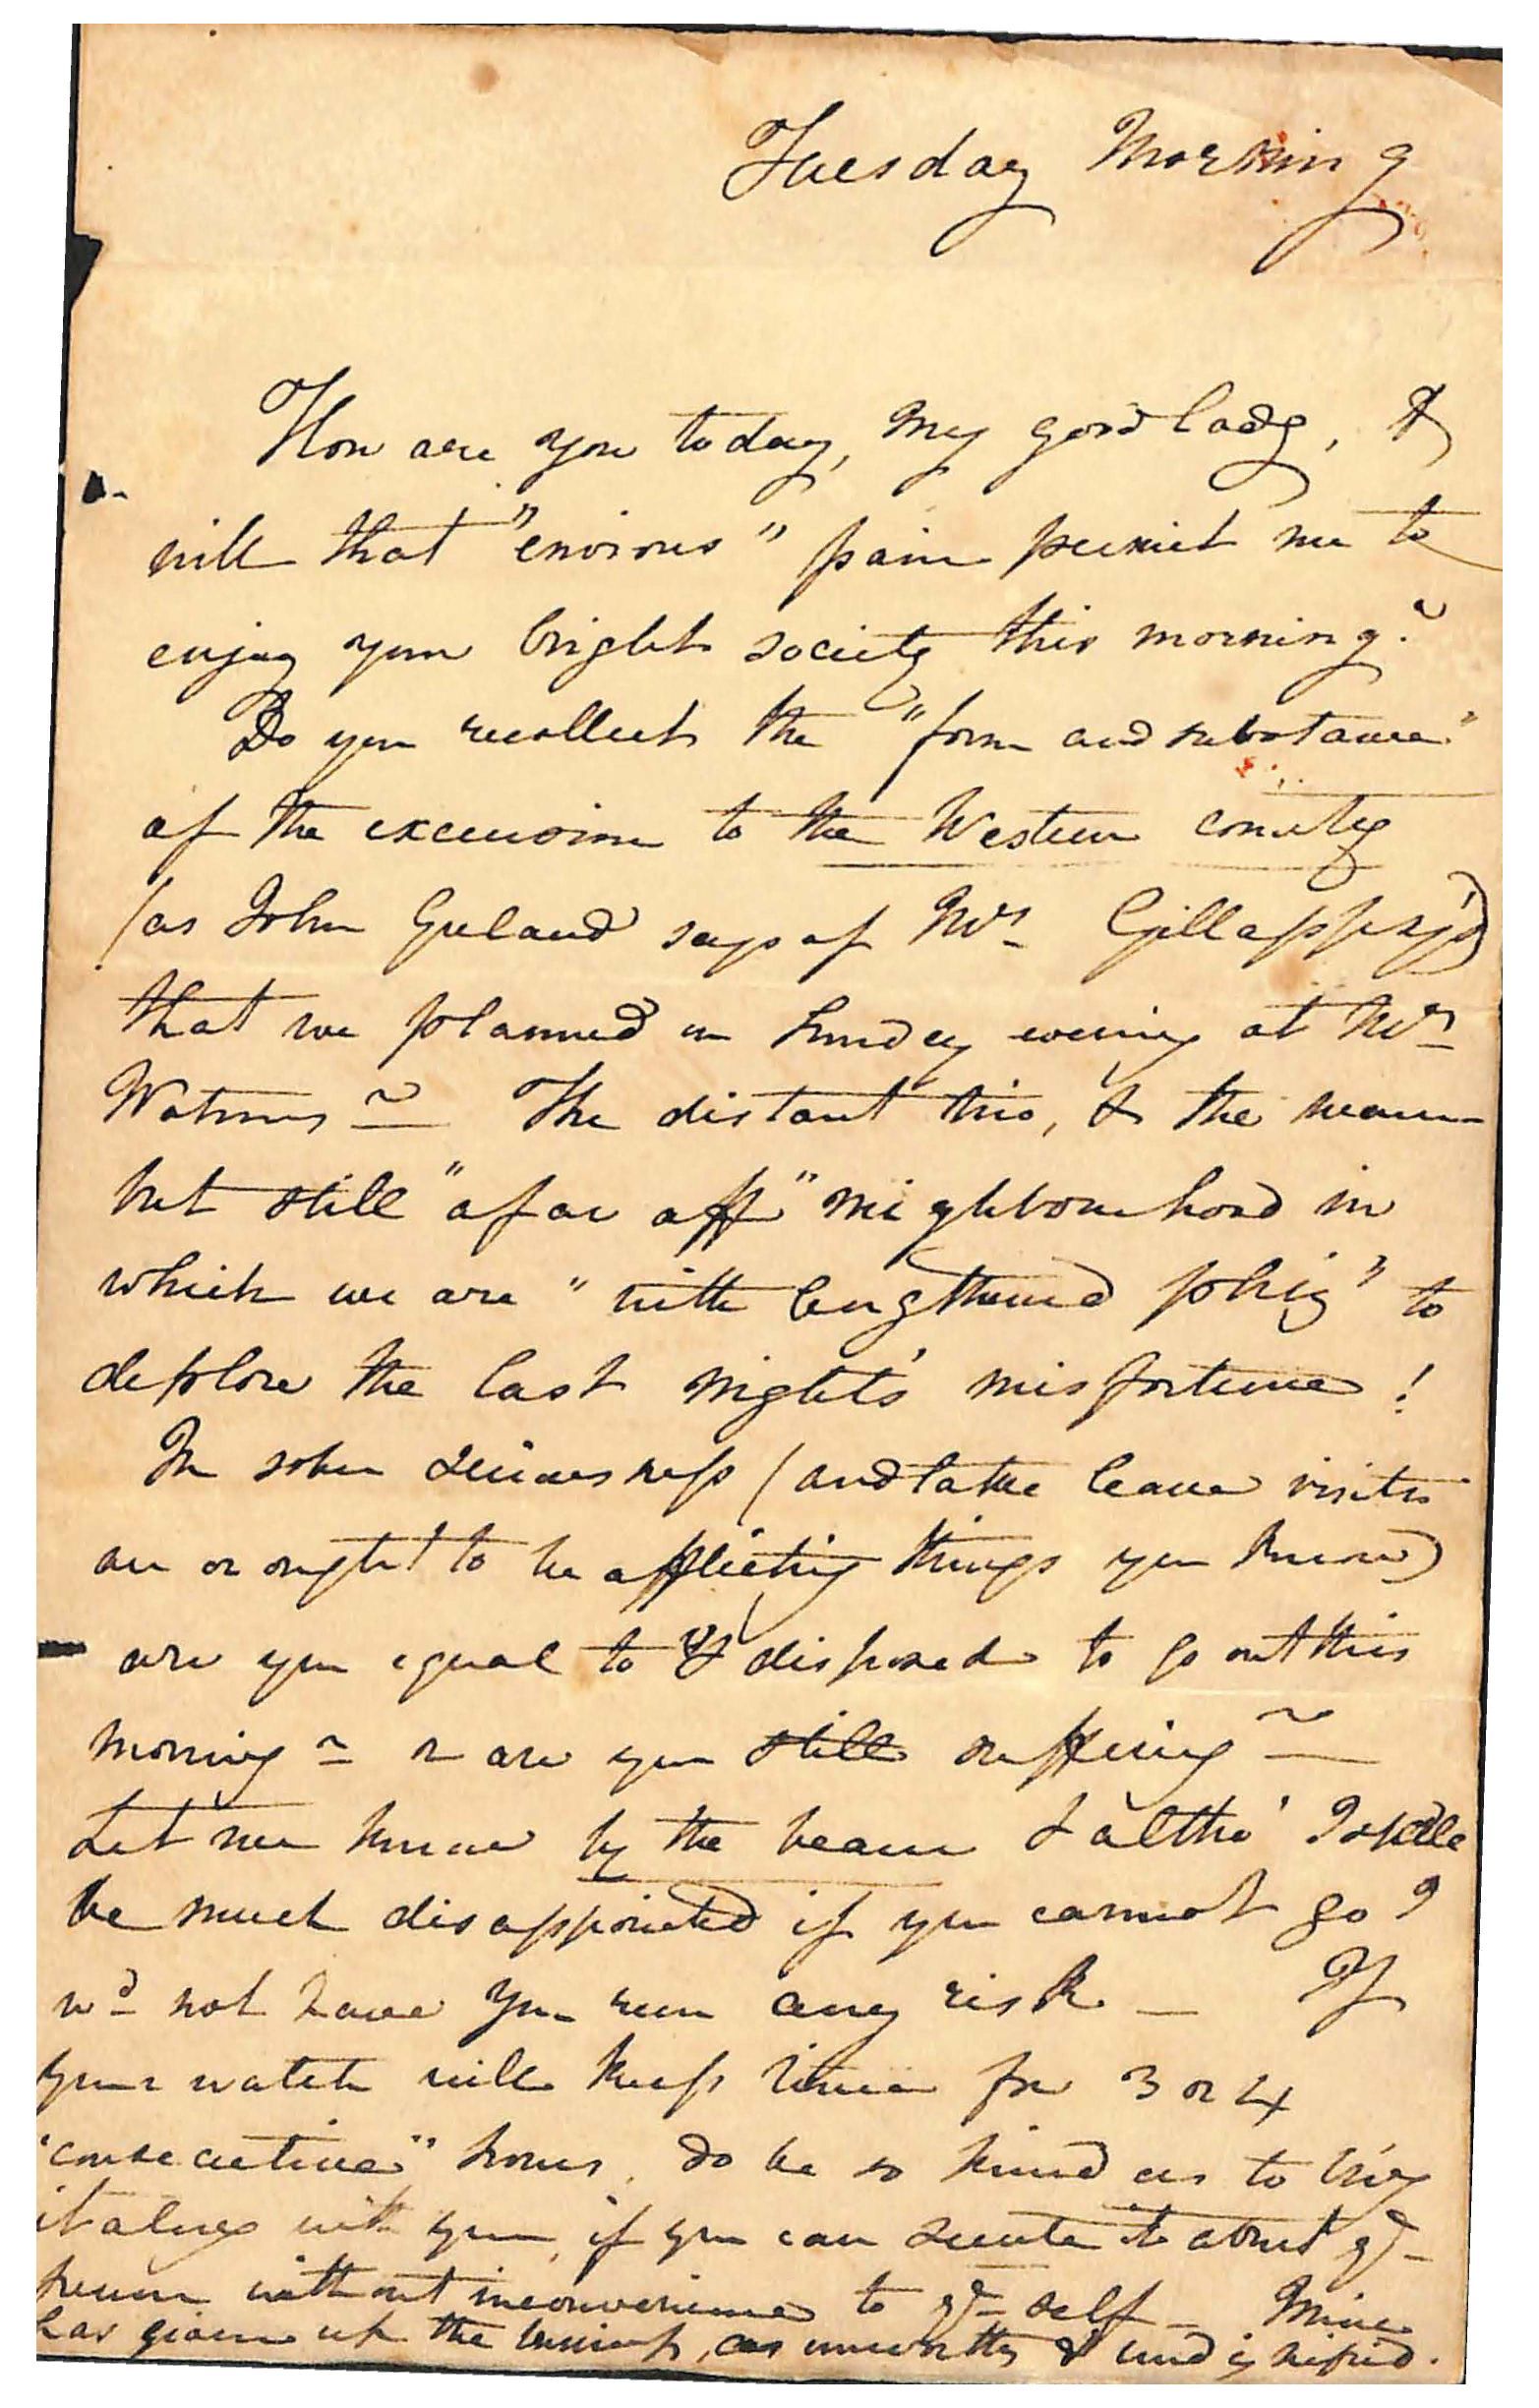 Tuesday Morning
How are you today, my good lady, &
will that "envious" pain permit me to
enjoy your bright society this morning?
Do you recollect the "form and substance"
of the excursion to the Western country
(as John Greland says of Mrs Gillaspey's)
that we planned on Sunday evening at Mrs
Watmos The distant trio, & the nearer
but still "afar off" neighbourhood in
which we are "with lengthened phiz" to
deplore the last night's misfortune!
In sober seriousness (and take leave visits
are or ought to be afflicting things you know)
are you equal to & disposed to go out this
morning or are you still suffering
Let me know by the bearer & altho' I shall
be much disappointed if you cannot go I
wd not have you run any risk — If
your watch will keep time for 3 or 4
"consecutive" hours, do be so kind as to bring
it along with you, if you can secrete it about yr
person without inconvenience to yr self — Mine
has given up the business, as unworthy & undignified.